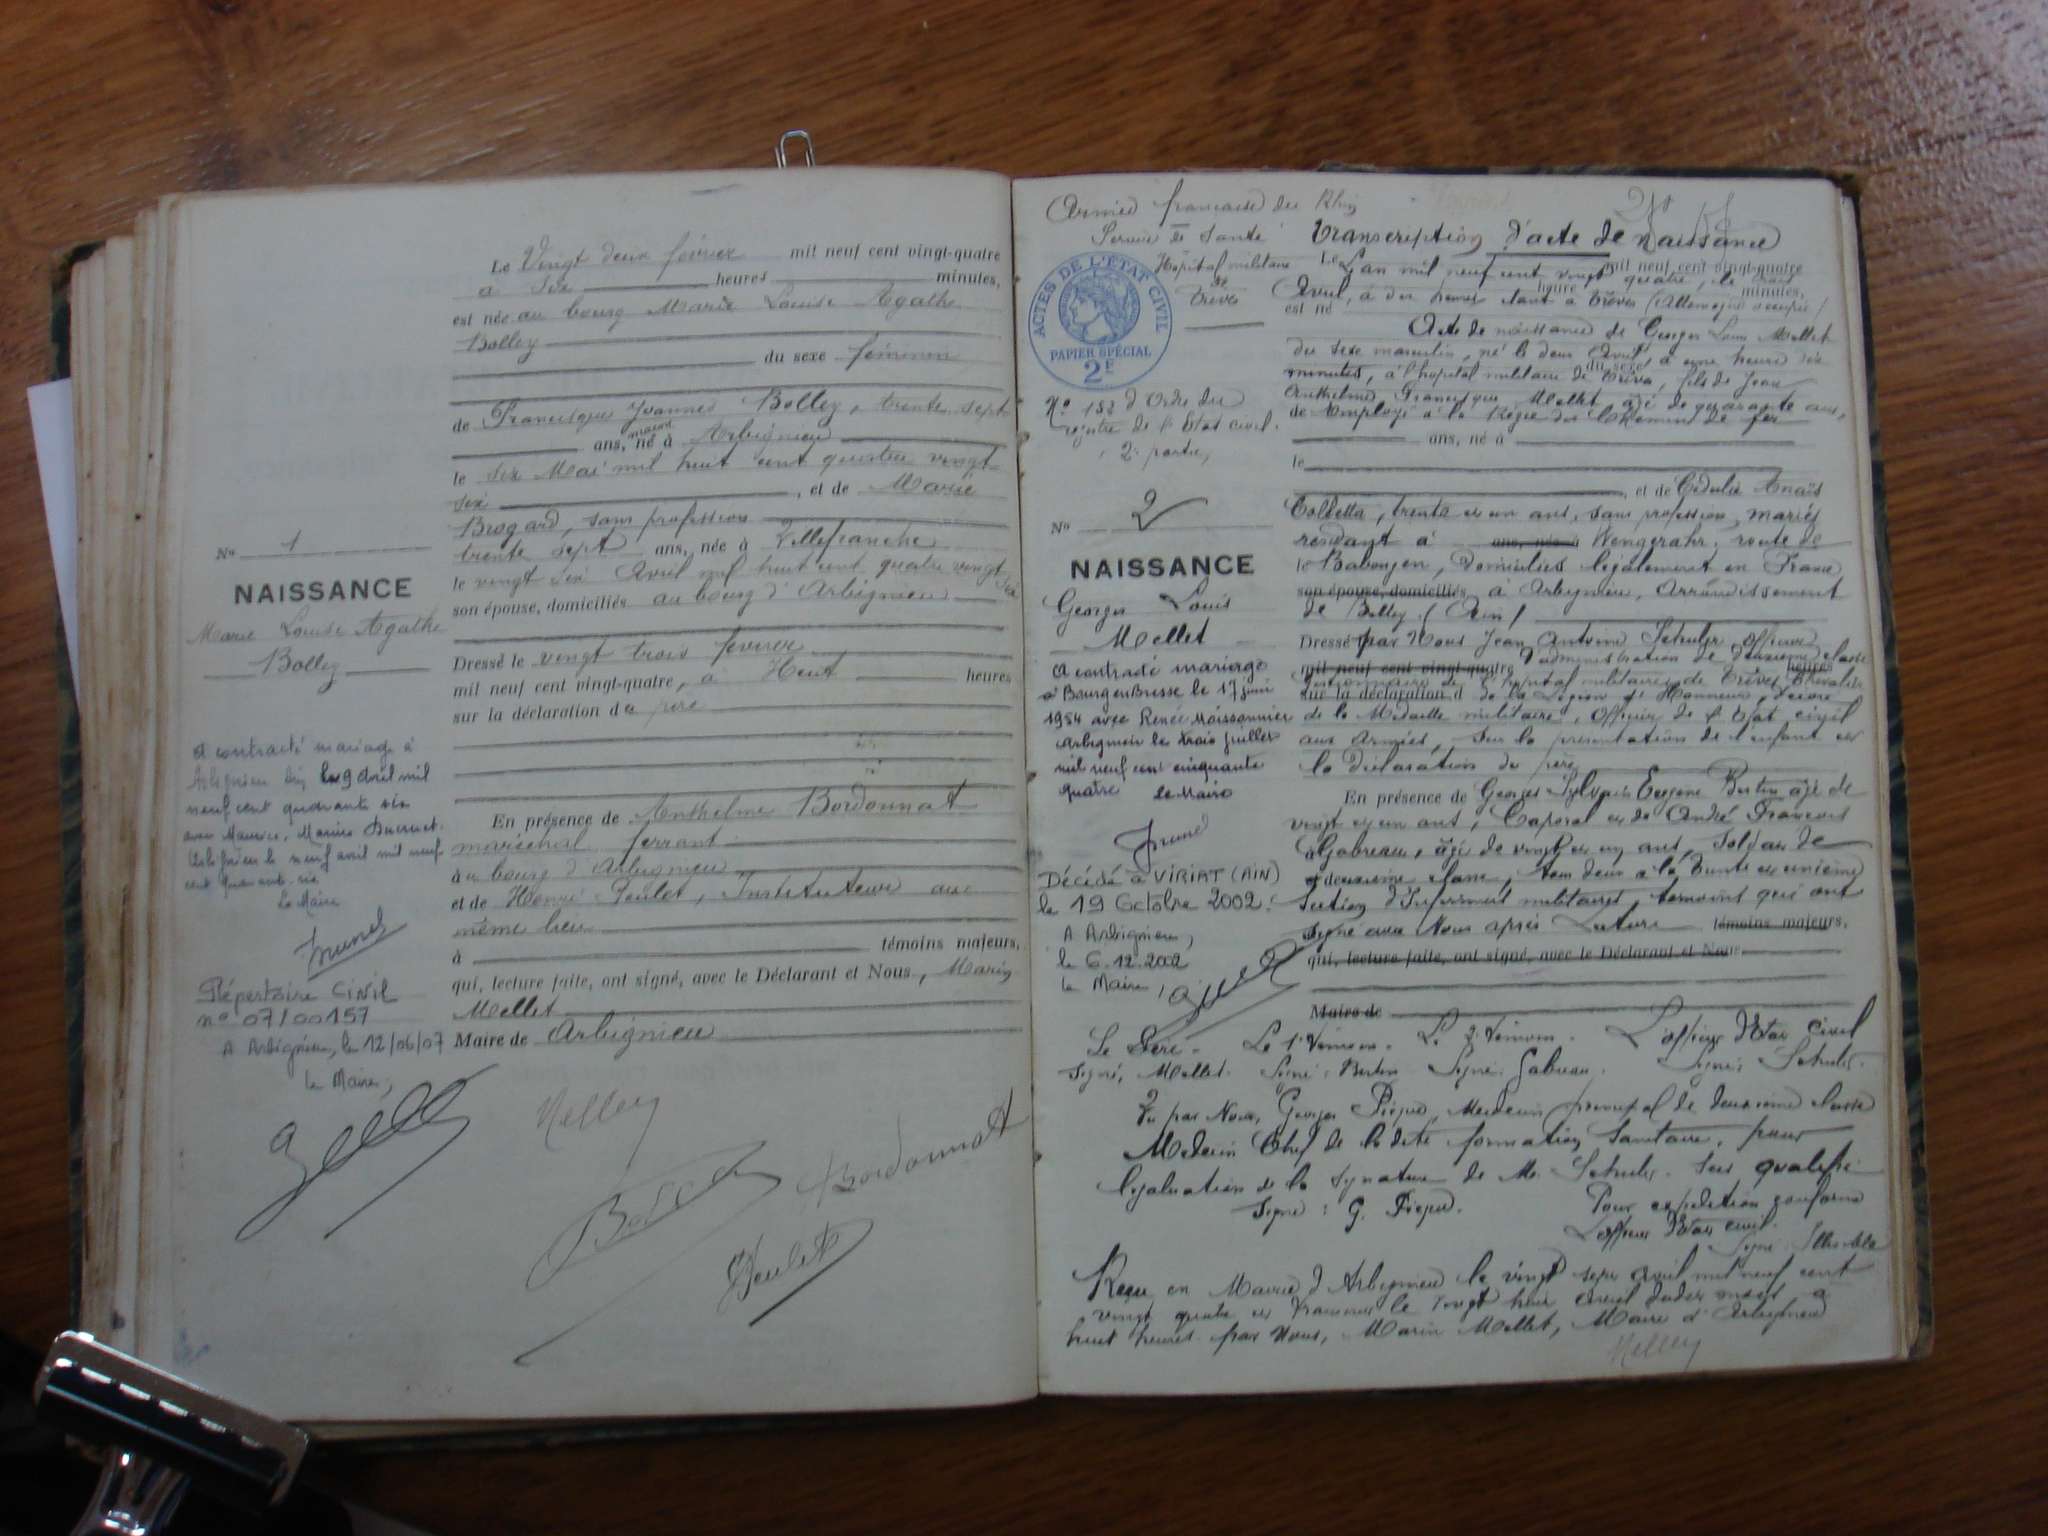 Le Vingt deux février mil neuf cent vingt-quatre
à six heures minutes,
est née au bourg Marie Louise Agathe
Bolley du sexe féminin
de Francisque Joannès Bolley, trente sept
ans, né à Arbignieu
le six Mai mil huit cent quatre vingt
six, et de Marie
Brogard, sans profession
trente sept ans, née à Villefranche
le vingt six Avril mil huit cent quatre vingt six
son épouse, domiciliés au bourg d'Arbignieu
Dressé le vingt trois février
mil neuf cent vingt-quatre, à Huit heures
sur la déclaration du père
En présence de Anthelme Bordonnat
maréchal ferrant
au bourg d'Arbignieu
et de Henri Poulet, Instituteur au
même lieu
à témoins majeurs,
qui, lecture faite, ont signé, avec le Déclarant et Nous, Marin
Mellet
Maire de Arbignieu
No 1
NAISSANCE
Marie Louise Agathe
Bolley
A contracté mariage à
Arbignieu le 9 avril mil
neuf cent quarante six
avec Maurice, Marius
Arbignieu le neuf avril mil neuf
cent quarante-six
Le Maire
Répertoire Civil
n° 07/00157
A Arbignieu, le 12/06/07
Le Maire,
Mellet
Bordonnat
Poulet
Armée française du Rhin
Service de Santé
Hôpital militaire
de
Trèves
ACTES DE L'ÉTAT CIVIL
PAPIER SPÉCIAL
2F
No 182 d'Ordre du
registre de l'Etat civil.
2e partie,
No 2
NAISSANCE
Georges Louis
Mellet
A contracté mariage
à Bourg en Bresse le 17 juin
1954 avec Renée Moissonnier
Arbignieu le trois juillet
mil neuf cent cinquante
quatre le Maire
Décédé à VIRIAT (AIN)
le 19 Octobre 2002.
A Arbignieu,
le 6.12.2002
Le Maire,
Transcription d'acte de naissance
Le L'an mil neuf cent vingt quatre, le trois mil neuf cent vingt-quatre
Avril, à dix heures étant à Trèves (Allemagne occupée) heure minutes,
est né
Acte de naissance de Georges Louis Mellet
du sexe masculin, né le deux Avril, à une heure dix
minutes, à l'hôpital militaire de Trèves, fils de Jean du sexe
Anthelme Francisque Mellet, âgé de quarante ans,
de Employé à la Régie des Chemins de fer
ans, né à
le
, et de Anaïs
Colletta, trente et un ans, sans profession, mariés
résidant à ans, née à Wengerohr, route de
le, domiciliés légalement en France
son épouse, domiciliés à Arbignieu, Arrondissement
de Belley (Ain)
Dressé par Nous Jean Antoine Schultz officier
d'administration de deuxième classe
mil neuf cent vingt-quatre heures
gestionnaire de l'hôpital militaire de Trèves Chevalier
sur la déclaration d de la Légion d'Honneur, décoré
de la Médaille militaire, officier de l'Etat civil
aux Armées, sur la présentation de l'enfant et
la déclaration du père
En présence de Georges Sylvain Eugène Bertin âgé de
vingt et un ans, Caporal et de André François
Gabreau, âgé de vingt et un ans, Soldat de
deuxième classe, tous deux à la trente et unième
Section d'Infirmiers militaires, témoins qui ont
signé avec Nous après Lecture témoins majeurs,
qui, lecture faite, ont signé, avec le Déclarant et Nous
Maire de
Le Père. Le 1er Témoin. Le 2e Témoin. L'officier d'Etat civil
Signé, Mellet. Signé: Bertin Signé: Gabreau. Signé: Schultz.
Vu par Nous, Georges, Médecin principal de deuxième classe
Médecin Chef de la dite formation Sanitaire, pour
légalisation de la signature de Mr. Schultz. ses qualités
Signé: G.
Pour expédition conforme
L'officier d'Etat civil.
Signé
Reçu en Mairie d'Arbignieu le vingt sept avril mil neuf cent
vingt quatre et transcrit le vingt huit avril dudit mois, à
huit heures par Nous, Marin Mellet, Maire d'Arbignieu
Mellet